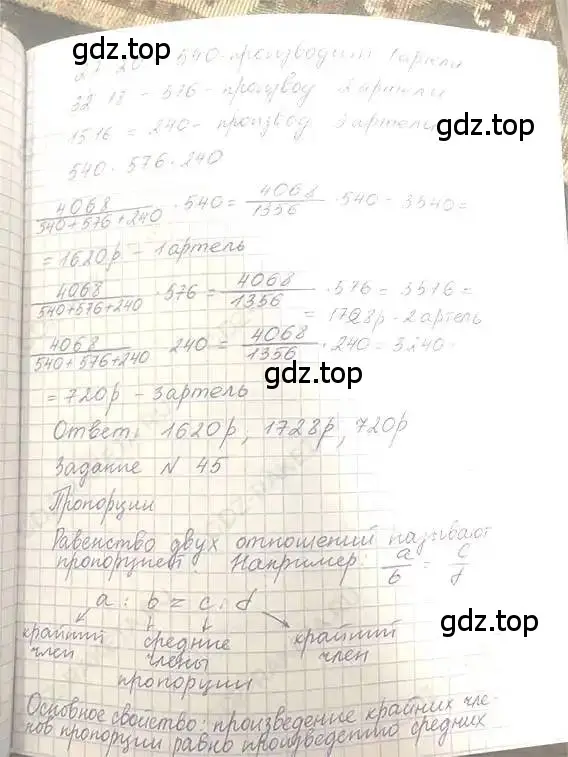 gdz.top
27·20 = 540 - производит 1 артели
32·18 - 576 - производ 2 артели
gdz.top
15·16 = 240 - производ 3 артели
540 · 576 · 240
gdz.top
4068/540+576+240 · 540 = 4068/1356 · 540 = 3540 =
= 1620р - 1 артель
4068/540+576+240 · 576 = 4068/1356 · 576 = 3576 =
= 1728р - 2 артель
4068/540+576+240 240 = 4068/1356 · 240 = 3240
gdz.top
= 720р - 3 артель
Ответ: 1620р, 1728р, 720р
Задание N 45
gdz.top
Пропорции
Равенство двух отношений называют
пропорцией. Например: a/b = c/d
a : b = c : d
gdz.top
крайний член средние члены пропорции крайний член
gdz.top
Основное свойство: произведение крайних чле-
нов пропорции равно произведению средних